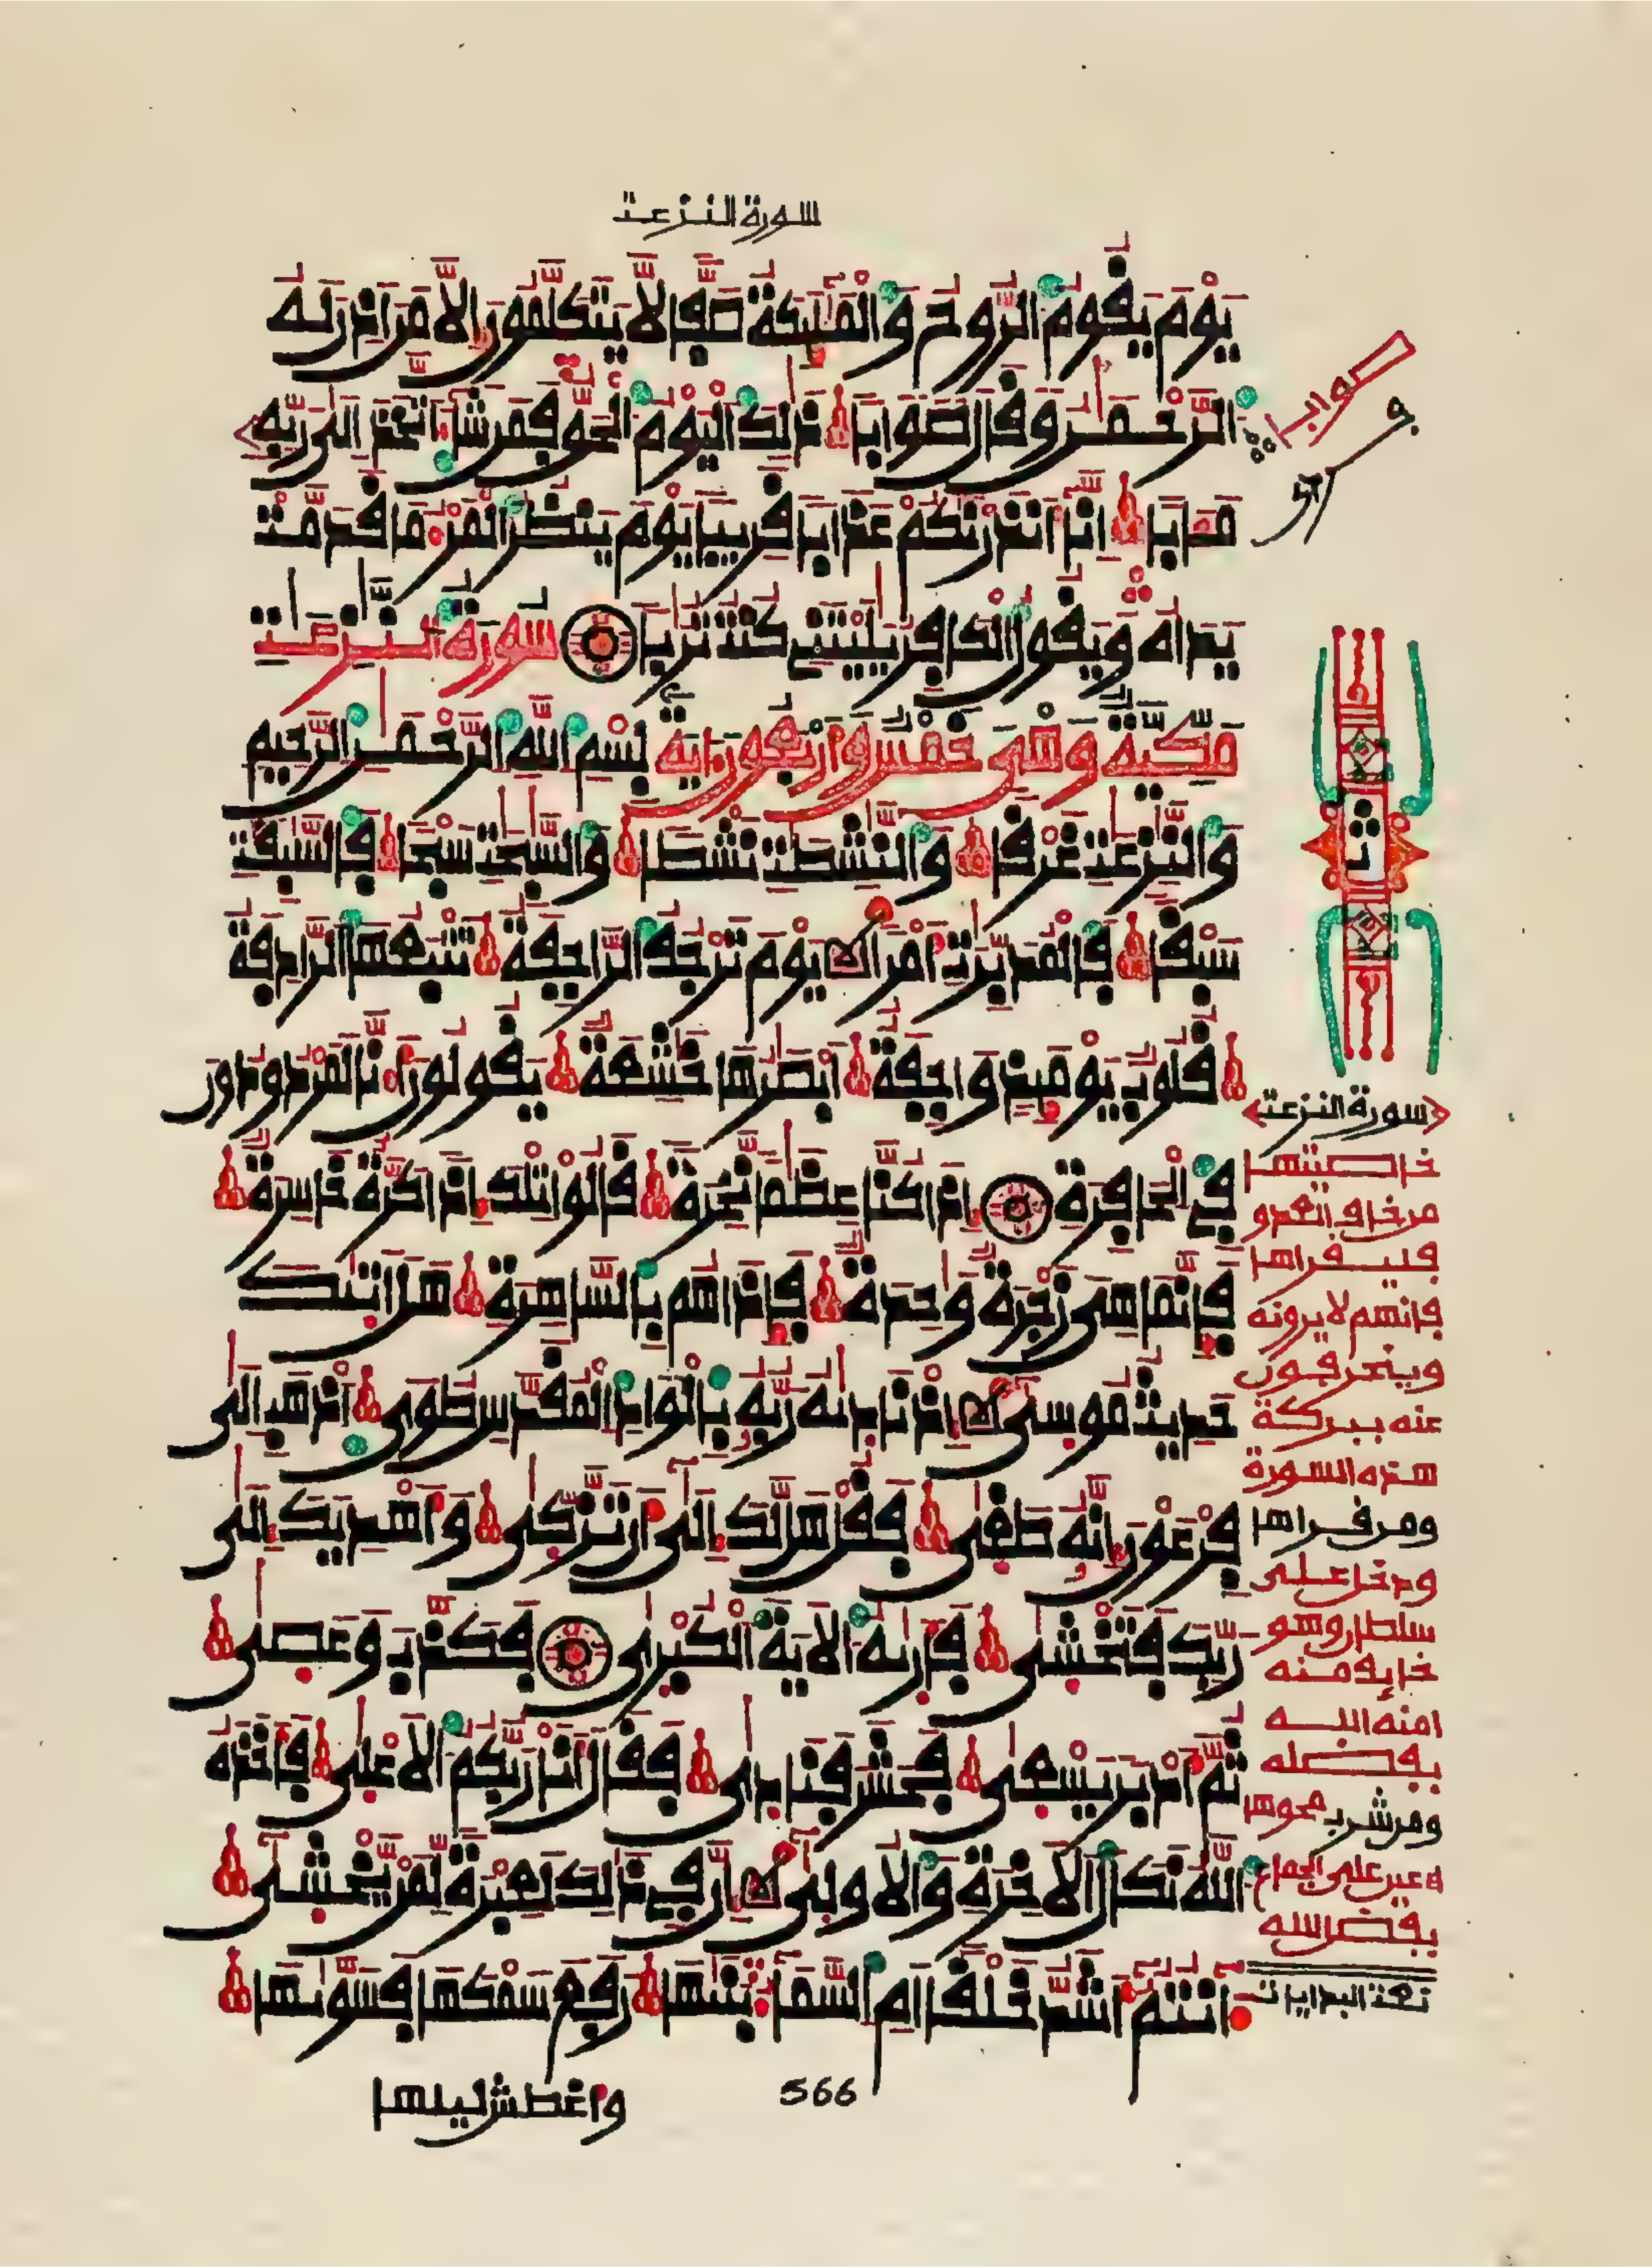 سورة النزعت
يوم يقوم الروح والملئكة صفا لا يتكلمون إلا من أذن له
الرحمن وقال صوابا ذلك اليوم الحق فمن شاء اتخذ إلى ربه
مءابا إنا أنذرنكم عذابا قريبا يوم ينظر المرء ما قدمت
يداه ويقول الكافر يليتني كنت تربا سورة النزعت
مكية وهي خمس وأربعون ءاية بسم الله الرحمن الرحيم
والنزعت غرقا والنشطت نشطا والسبحت سبحا فالسبقت
سبقا فالمدبرت أمرا يوم ترجف الراجفة تتبعها الرادفة
قلوب يومئذ واجفة أبصرها خشعة يقولون أءنا لمردودون
في الحافرة إذا كنا عظما نخرة قالوا تلك إذا كرة خاسرة
فإنما هي زجرة وحدة فإذا هم بالساهرة هل أتيك
حديث موسى إذ ناديه ربه بالواد المقدس طوى اذهب إلى
فرعون إنه طغى فقل هل لك إلى أن تزكى وأهديك إلى
ربك فتخشى فأريه الآية الكبرى فكذب وعصى
ثم أدبر يسعى فحشر فنادى فقال أنا ربكم الأعلى فأخذه
الله نكال الآخرة والأولى إن في ذلك لعبرة لمن يخشى
ءأنتم أشد خلقا أم السماء بنيها رفع سمكها فسويها
وأغطش ليلها
566
صوابا
سورة النزعت
خاصيتها
من خاف العدو
فليقراها
فإنهم لا يرونه
وينحرفون
عنه ببركة
هذه السورة
ومن قراها
ودخل على
سلطان وهو
خايف منه
امنه الله
بفضله
ومن شرب محوها
اعين على الجماع
بفضل الله